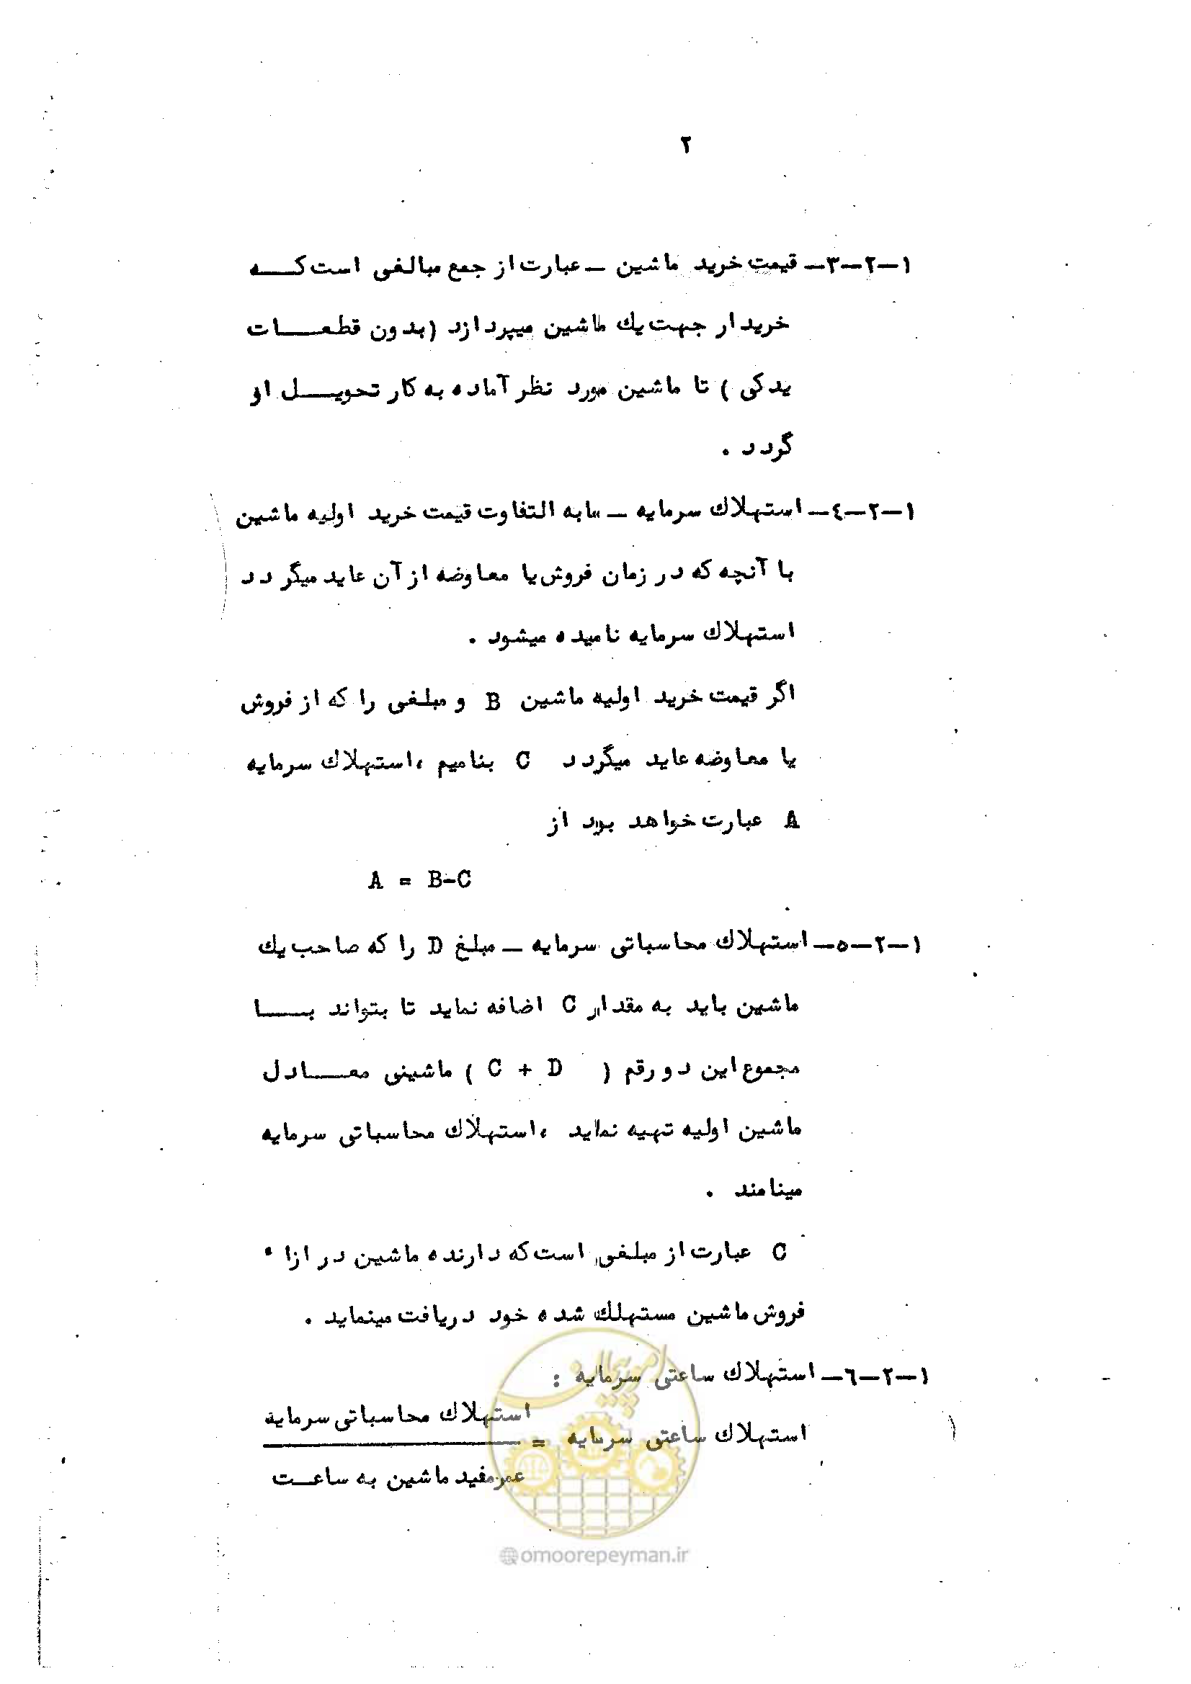 ۲
۱-۲-۳- قیمت خرید ماشین - عبارت از جمع مبالغی است که
خریدار جهت یك ماشین میپردازد (بدون قطعات
یدکی) تا ماشین مورد نظر آماده به کار تحویل او
گردد.
۱-۲-٤- استهلاك سرمایه - مابه التفاوت قیمت خرید اولیه ماشین
با آنچه که در زمان فروش یا معاوضه از آن عاید میگردد
استهلاك سرمایه نامیده میشود.
اگر قیمت خرید اولیه ماشین B و مبلغی را که از فروش
یا معاوضه عاید میگردد C بنامیم، استهلاك سرمایه
A عبارت خواهد بود از
A = B-C
۱-۲-۵- استهلاك محاسباتی سرمایه - مبلغ D را که صاحب یك
ماشین باید به مقدار C اضافه نماید تا بتواند با
مجموع این دو رقم (C + D) ماشینی معادل
ماشین اولیه تهیه نماید، استهلاك محاسباتی سرمایه
مینامند.
C عبارت از مبلغی است که دارنده ماشین در ازاء
فروش ماشین مستهلك شده خود دریافت مینماید.
۱-۲-٦- استهلاك ساعتی سرمایه:
استهلاك محاسباتی سرمایه
استهلاك ساعتی سرمایه =
عمر مفید ماشین به ساعت
امور پیمان
omoorepeyman.ir